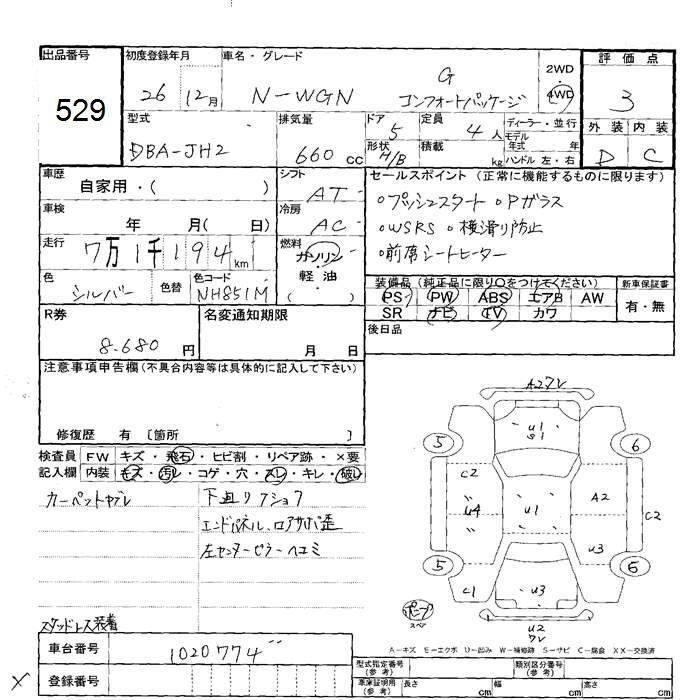 出品番号 初度登録年月 車名・グレード 2WD 評価点
529 26 12月 N-WGN G コンフォートパッケージ 4WD 3
型式 排気量 ドア 定員 ディーラー・並行 外装 内装
DBA-JH2 660 cc 5 4人 モデル年式 年 D C
形状 H/B 積載 kg ハンドル 左・右
車歴 シフト セールスポイント (正常に機能するものに限ります)
自家用・( ) AT 。プッシュスタート 。Pガラス
車検 冷房 。WSRS 。横滑り防止
年 月( 日) AC 。前席シートヒーター
走行 燃料
7万1千194km ガソリン・
色 色替 色コード 軽油 装備品 (純正品に限り○をつけてください) 新車保証書
シルバー NH851M ( ) PS PW ABS エアB AW 有・無
R券 名変通知期限 SR ナビ TV カワ
8.680円 月 日 後日品
注意事項申告欄(不具合内容等は具体的に記入して下さい)
修復歴 有 〔箇所 〕
検査員 FW キズ・飛石・ヒビ割・リペア跡・×要
記入欄 内装 キズ・汚レ・コゲ・穴・スレ・キレ・破レ
カーペットヤブレ 下廻りアショア
エンドパネル、ロアサポ歪
左センターピラーヘコミ
スタッドレス装着
A2ワレ
U1
S1
5 6
C2
U4 U1 A2 C2
U3
5 6
C1 U3
スペア
U2
ワレ
A－キズ E－エクボ U－凹み W－補修跡 S－サビ C－腐食 XX－交換済
車台番号 1020774
登録番号
型式指定番号(参考) 類別区分番号(参考)
車庫証明用(参考) 長さ cm 幅 cm 高さ cm